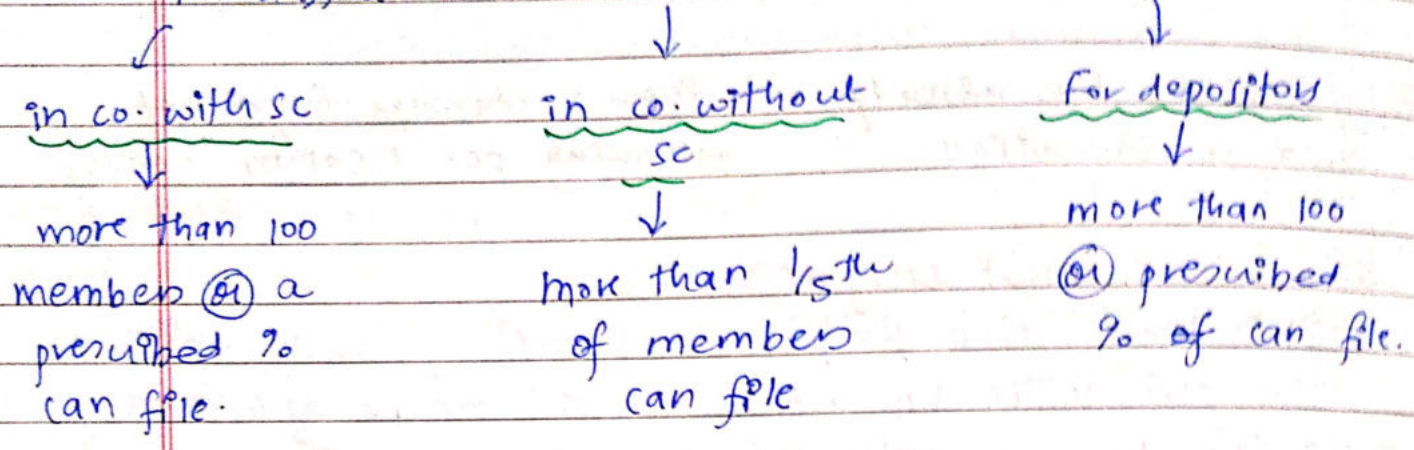 in co. with sc
more than 100
members or a
prescribed %
can file.
in co. without
sc
more than 1/5th
of members
can file
for depositors
more than 100
or prescribed
% of can file.